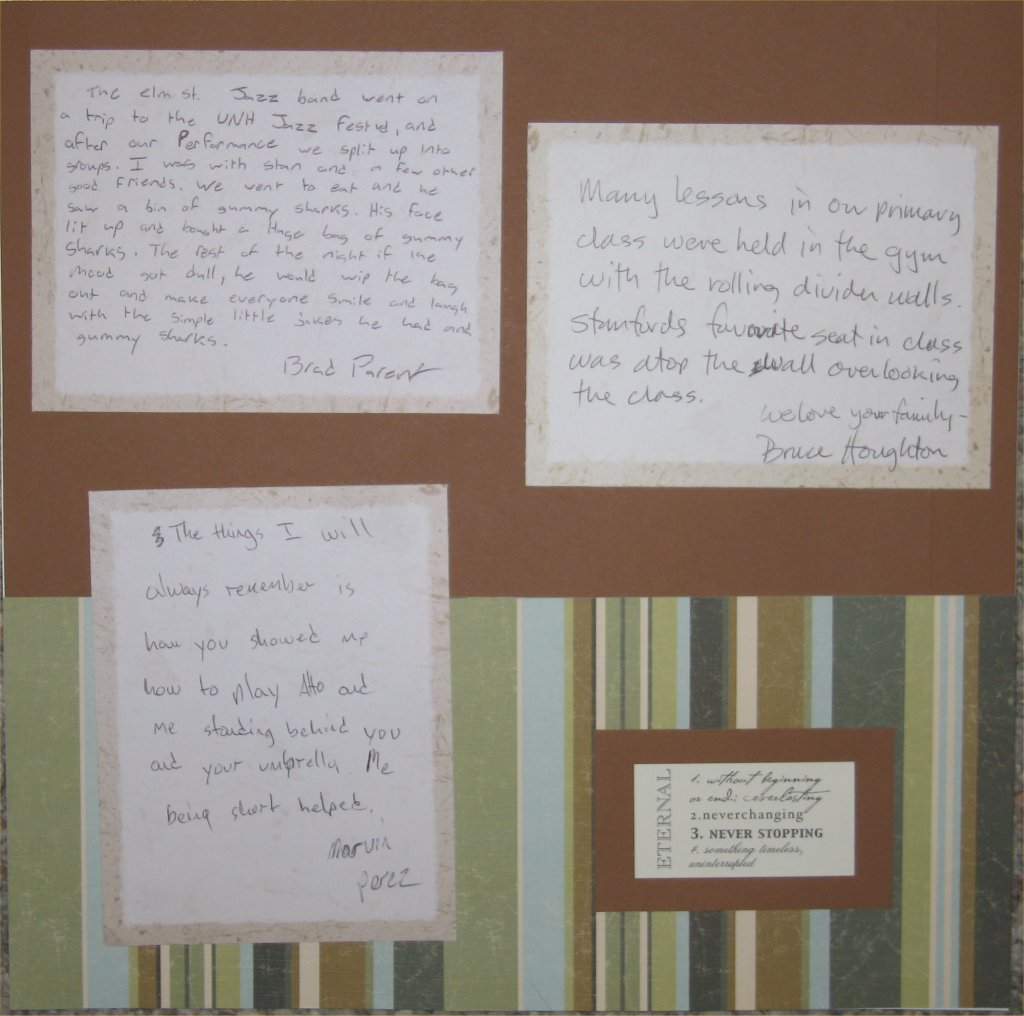 The elm st. Jazz band went on
a trip to the UNH Jazz Festivl, and
after our Performance we split up into
groups. I was with stan and a few other
good Friends. We went to eat and he
saw a bin of gummy sharks. His face
lit up and bought a Huge bag of gummy
Sharks. The rest of the night if the
mood got dull, he would wip the bag
out and make everyone smile and laugh
with the simple little jokes he had and
gummy sharks.
Brad Parent
Many lessons in our primary
class were held in the gym
with the rolling divider walls.
Stanfords favorite seat in class
was atop the wall overlooking
the class.
We love your family-
Bruce Houghton
The things I will
always remember is
how you showed me
how to play Alto and
me standing behind you
and your umbrella. Me
being short helped.
Marvin
perez
ETERNAL
1. without beginning
or end; everlasting
2. neverchanging
3. NEVER STOPPING
4. something timeless,
uninterrupted